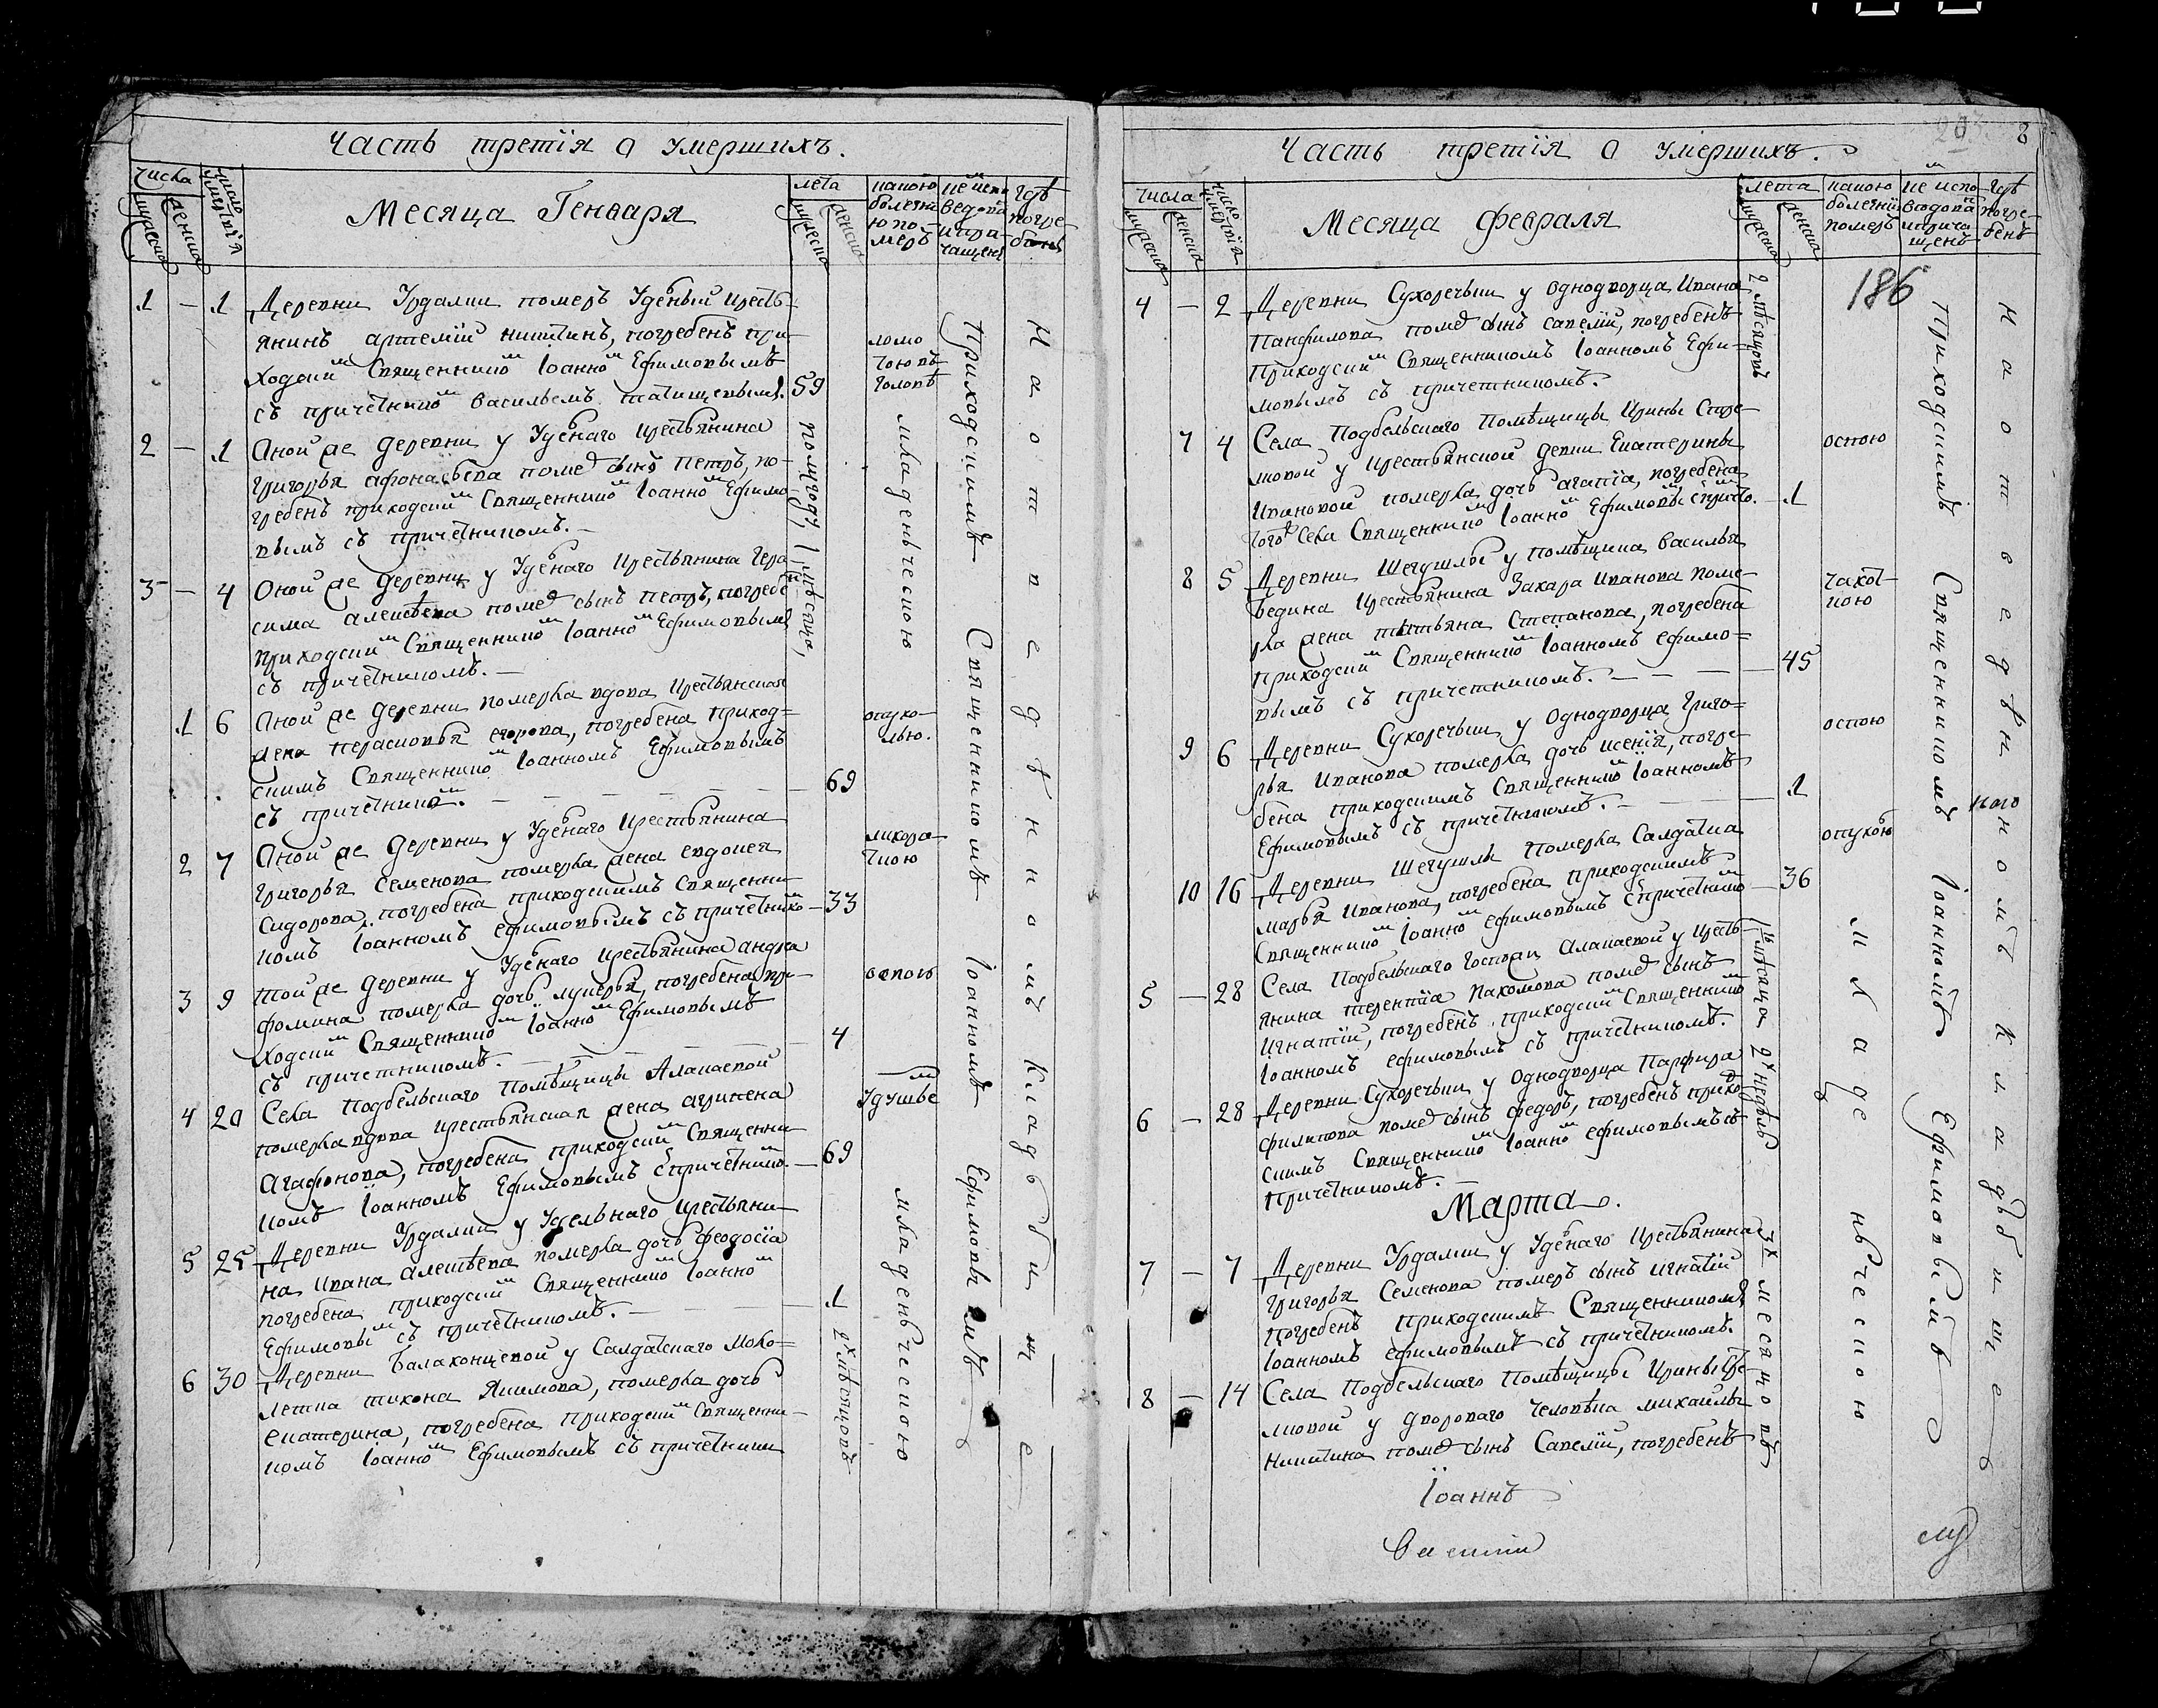 Часть третїя о умершихъ.
Числа
мужеска
женска
число умертвїя
Месяца Генваря
лета
мужеска
женска
какою болезнию померъ
кем исповеданъ и причащенъ
где погребенъ
1 — 1 Деревни Урдалки померъ Удѣлный кресть-
янинъ артемїй никитинъ, погребенъ при-
ходским Священником Іоанном Ефимовымъ
съ причетником василъемъ татищевымъ. 59
ломо
тою въ
головѣ
2 — 1 Оной же деревни у Удѣлнаго крестьянина
григорья афонасьева помеꙶ сынъ Петръ, по-
гребенъ приходским Священником Іоанном Ефимо-
вымъ съ причетникомъ. —
полугоду
3 — 4 Оной же деревни у Удѣлнаго крестьянина Гера-
сима алексѣева помеꙶ сынъ петръ, погребен
приходским Священником Іоанном Ефимовымъ
съ причетникомъ. —
1 мѣсяца,
младенческою
1 6 Оной же деревни померла вдова крестьянская
жена парасковья егорова, погребена приход=
скимъ Священником Іоанномъ Ефимовымъ
съ причетником. — 69
опухо-
лью.
2 7 Оной же деревни у Удѣлнаго крестьянина
григорья семенова померла жена евдокея
Сидорова, погребена приходскимъ священни-
комъ Іоанномъ ефимовымъ съ причетником — 33
лихора-
ткою
3 9 той же деревни у Удѣлнаго крестьянина андрея
фомина померла дочь лукерья, погребена при-
ходским Священником Іоанном Ефимовымъ
съ причетникомъ. — 4
оспою
4 20 Села Подбельскаго Помѣщицы Алакаевой
померла вдова крестьянская жена агрипена
Агафонова, погребена приходским Священни-
комъ Іоанномъ Ефимовымъ с причетником. — 69
Удушье
5 25 Деревни Урдалки у Удельнаго крестьяни-
на ивана алексѣева померла дочь феодосїа
погребена приходским Священником Іоанном
Ефимовым съ причетникомъ. — 1
6 30 Деревни Балахонцевой у Салдатскаго мало=
летка тихона Якимова, померла дочь
екатерина, погребена приходским Священни-
комъ Іоанном Ефимовымъ съ причетники
2х мѣсяцовъ
младенческою
Приходскимъ Священникомъ Іоанномъ Ефимовымъ
На отведѣнномъ Кладбище
Часть третїя о умерших. 8
Числа
мужеска
женска
число умертвїя
Месяца Февраля
лета
мужеска
женска
какою болезнию померъ
кем исповеданъ и причащенъ
где погребенъ
186
4 — 2 Деревни Сухоречьки у однодворца Ивана
Панфилова помеꙶ сынъ савелїй, погребенъ
Приходским Священникомъ Іоанномъ Ефи=
мовымъ съ причетникомъ.
2 мѣсяцовъ
7 4 Села Подбельскаго Помѣщицы Ирины
у крестьянской девки Екатерины
Ивановой померла дочь агапїа, погребена
того Села Священником Іоанном Ефимовым 1
оспою
8 5 Деревни Шегушлы у помѣщика василья
ведина крестьянина Захара Иванова поме-
рла жена татьяна Степанова, погребена
приходским Священником Іоанномъ ефимо=
вымъ съ причетникомъ. — 45
чахот-
кою
9 6 Деревни Сухоречьки у Однодворца Григо=
рья Иванова померла дочь ксенїя, погре-
бена приходскимъ Священником Іоанномъ
Ефимовымъ съ причетникомъ. — 1
оспою
10 16 Деревни Шегушлы Померла Салдатка
марья Иванова, погребена приходскимъ
Священником Іоанном ефимовымъ с причетником — 36
опухолью
5 — 28 Села Подбельскаго госпожи Алакаевой у кресть-
янина терентїа Пахомова помеꙶ сынъ
Игнатїй, погребенъ приходским Священником
Іоанномъ ефимовымъ съ причетникомъ.
1 мѣсяца
6 — 28 Деревни Сухоречьки у Однодворца Парфира
филипова помеꙶ сынъ федоръ, погребенъ приход-
скимъ Священником Іоанном ефимовымъ съ
причетникомъ. —
2х недѣль
Марта.
7 — 7 Деревни Урдалки у Удѣлнаго крестьянина
григорья Семенова померъ сынъ игнатїй
погребенъ приходскимъ Священникомъ
Іоанномъ ефимовымъ съ причетникомъ.
3х месяцовъ
8 — 14 Села Подбельскаго Помѣщицы Ирины
у двороваго человѣка михаилы
никитина помеꙶ сынъ Савелїй, погребенъ
Младенческою
Приходскимъ Священникомъ Іоанномъ Ефимовымъ
На отведѣнномъ Кладбище
Іоаннъ